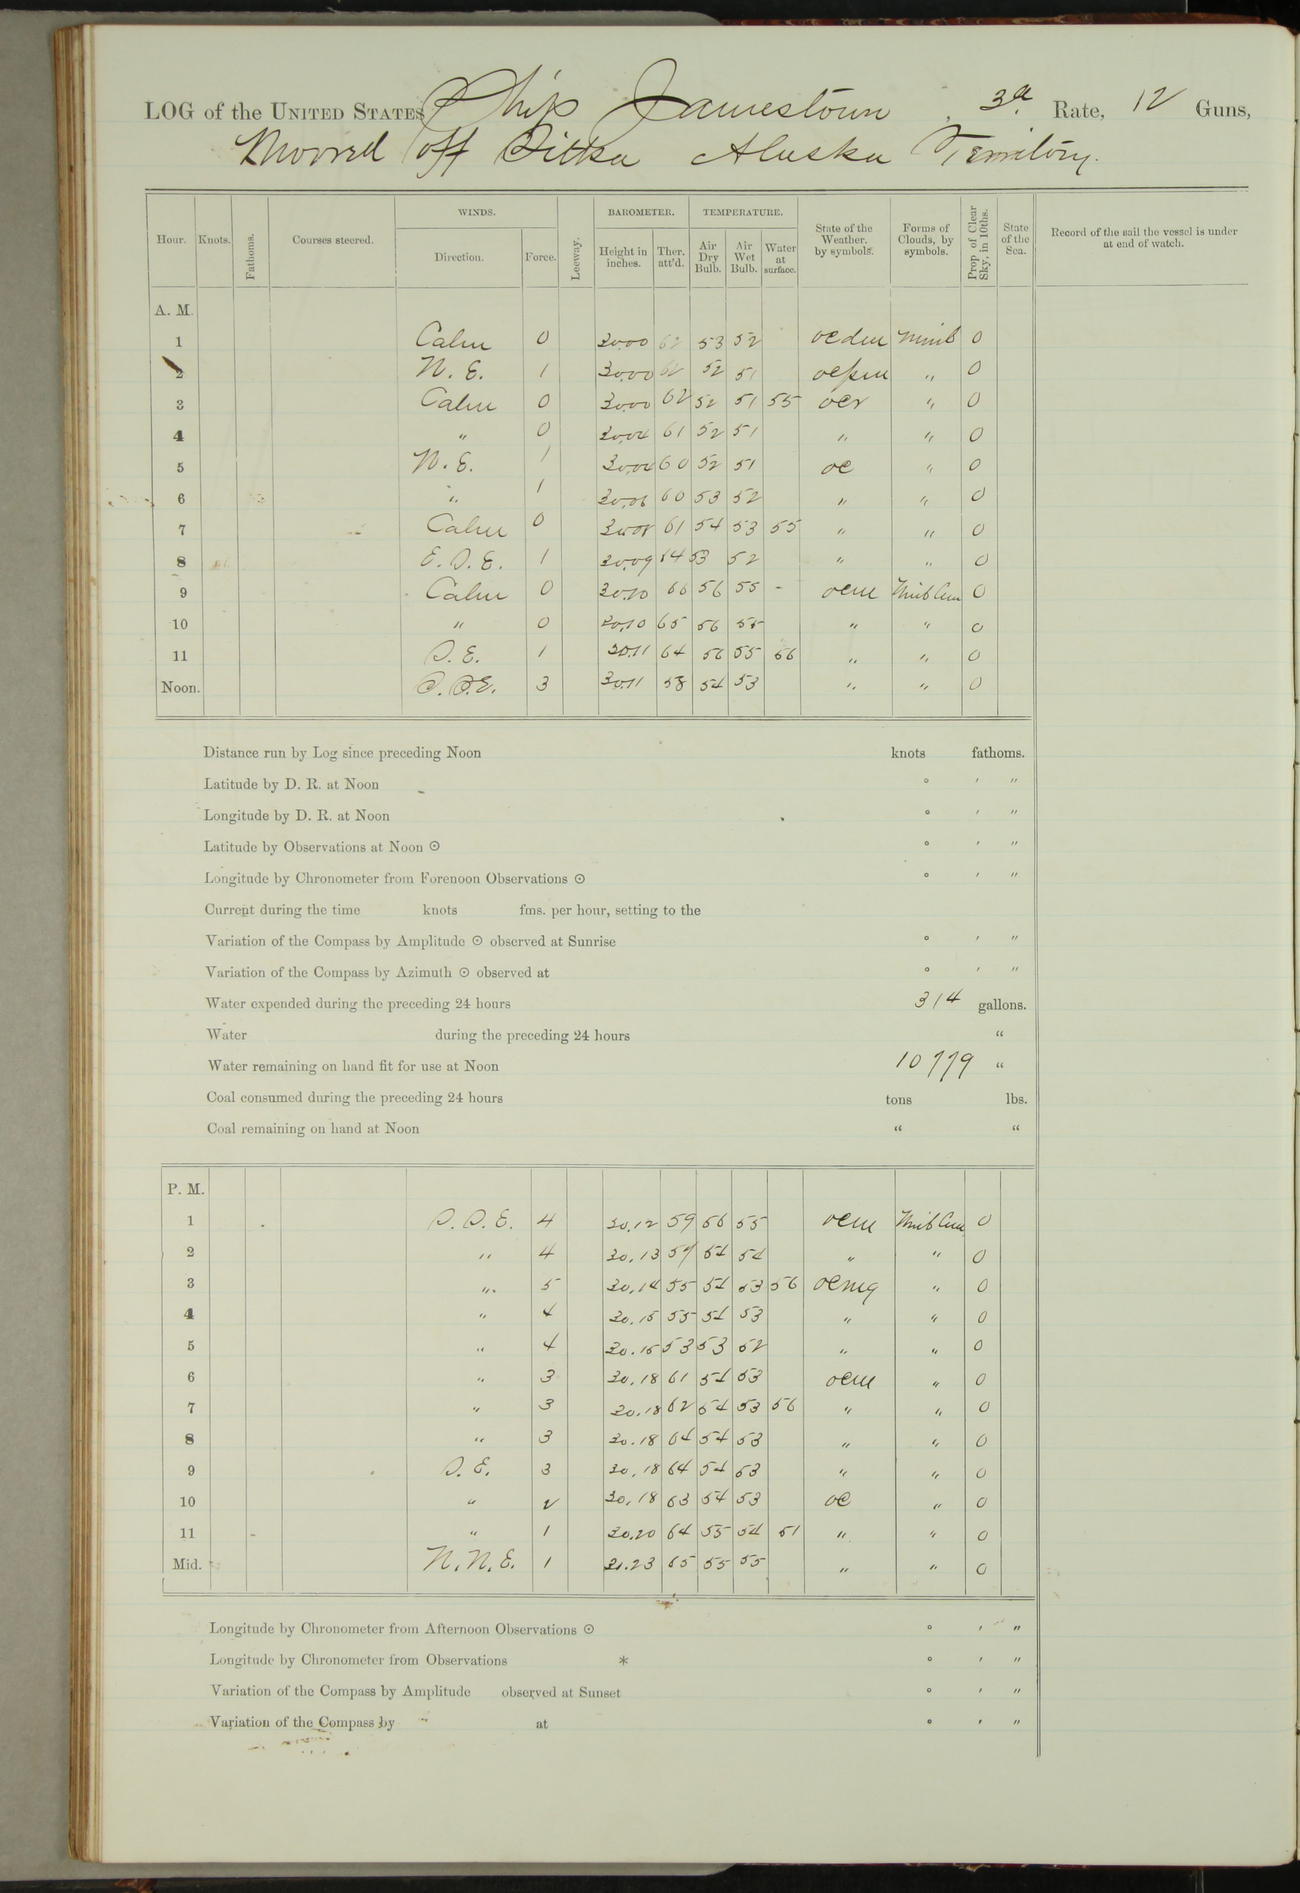 LOG of the UNITED STATES Ship Jamestown, 3d Rate, 12 Guns,
Moored off Sitka Alaska Territory.
Hour. Knots. Fathoms. Courses steered. WINDS. Direction. Force. Leeway. BAROMETER. Height in inches. Ther. att'd. TEMPERATURE. Air Dry Bulb. Air Wet Bulb. Water at surface. State of the Weather. by symbols. Forms of Clouds, by symbols. Prop. of Clear Sky, in 10ths. State of the Sea. Record of the sail the vessel is under at end of watch.
A. M.
1 Calm 0 30.00 62 53 52 ocdm Nimb 0
2 N. E. 1 30.00 62 52 51 ocpm " 0
3 Calm 0 30.00 62 52 51 55 ocr " 0
4 " 0 30.04 61 52 51 " " 0
5 N. E. 1 30.04 60 52 51 oc " 0
6 " 1 30.06 60 53 52 " " 0
7 Calm 0 30.08 61 54 53 55 " " 0
8 E. S. E. 1 30.09 64 53 52 " " 0
9 Calm 0 30.10 66 56 55 - ocm Nimb Cum 0
10 " 0 30.10 65 56 55 " " 0
11 S. E. 1 30.11 64 56 55 56 " " 0
Noon. S. S. E. 3 30.11 58 54 53 " " 0
Distance run by Log since preceding Noon knots fathoms.
Latitude by D. R. at Noon ° ′ ″
Longitude by D. R. at Noon ° ′ ″
Latitude by Observations at Noon ⊙ ° ′ ″
Longitude by Chronometer from Forenoon Observations ⊙ ° ′ ″
Current during the time knots fms. per hour, setting to the
Variation of the Compass by Amplitude ⊙ observed at Sunrise ° ′ ″
Variation of the Compass by Azimuth ⊙ observed at ° ′ ″
Water expended during the preceding 24 hours 314 gallons.
Water during the preceding 24 hours "
Water remaining on hand fit for use at Noon 10779 "
Coal consumed during the preceding 24 hours tons lbs.
Coal remaining on hand at Noon " "
P. M.
1 S. S. E. 4 30.12 59 56 55 ocm Nimb Cum 0
2 " 4 30.13 57 54 54 " " 0
3 " 5 30.14 55 54 53 56 ocmq " 0
4 " 4 30.15 55 54 53 " " 0
5 " 4 30.15 53 53 52 " " 0
6 " 3 30.18 61 54 53 ocm " 0
7 " 3 30.18 62 54 53 56 " " 0
8 " 3 30.18 64 54 53 " " 0
9 S. E. 3 30.18 64 54 53 " " 0
10 " 2 30.18 63 54 53 oc " 0
11 " 1 30.20 64 55 54 51 " " 0
Mid. N. N. E. 1 30.23 65 55 55 " " 0
Longitude by Chronometer from Afternoon Observations ⊙ ° ′ ″
Longitude by Chronometer from Observations * ° ′ ″
Variation of the Compass by Amplitude observed at Sunset ° ′ ″
Variation of the Compass by at ° ′ ″